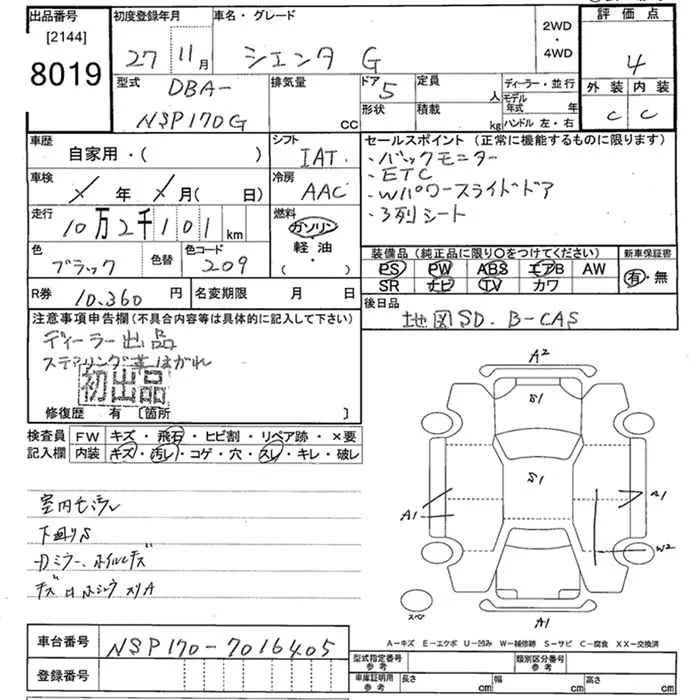 出品番号
[2144]
8019
初度登録年月
27 11月
車名・グレード
シエンタ G
2WD
・
4WD
評価点
4
外装 内装
C C
型式
DBA-
NSP170G
排気量
CC
ドア 5
形状
定員
人
積載
kg
ディーラー・並行
モデル年式 年
ハンドル 左・右
車歴
自家用・( )
シフト
IAT
車検
年 月(日)
冷房
AAC
走行
10万2千101km
燃料
ガソリン
・
軽油
・
( )
色
ブラック
色替
色コード
209
R券 10,360円
名変期限 月 日
セールスポイント (正常に機能するものに限ります)
・バックモニター
・ETC
・Wパワースライドドア
・3列シート
装備品 (純正品に限り○をつけてください)
PS PW ABS エアB AW
SR ナビ TV カワ
新車保証書
有・無
後日品
地図SD. B-CAS
注意事項申告欄 (不具合内容等は具体的に記入して下さい)
ディーラー出品
ステアリング革はがれ
初出品
修復歴 有〔箇所 〕
検査員
記入欄
FW キズ・飛石・ヒビ割・リペア跡・×要
内装 キズ・汚レ・コゲ・穴・スレ・キレ・破レ
下廻りS
Dミラー、ホイルキズ
A2
S1
S1
A1
W2
A1
スペア
A−キズ E−エクボ U−凹み W−補修跡 S−サビ C−腐食 XX−交換済
車台番号 NSP170-7016405
登録番号
型式指定番号
参考
類別区分番号
参考
車庫証明用
参考
長さ cm
幅 cm
高さ cm